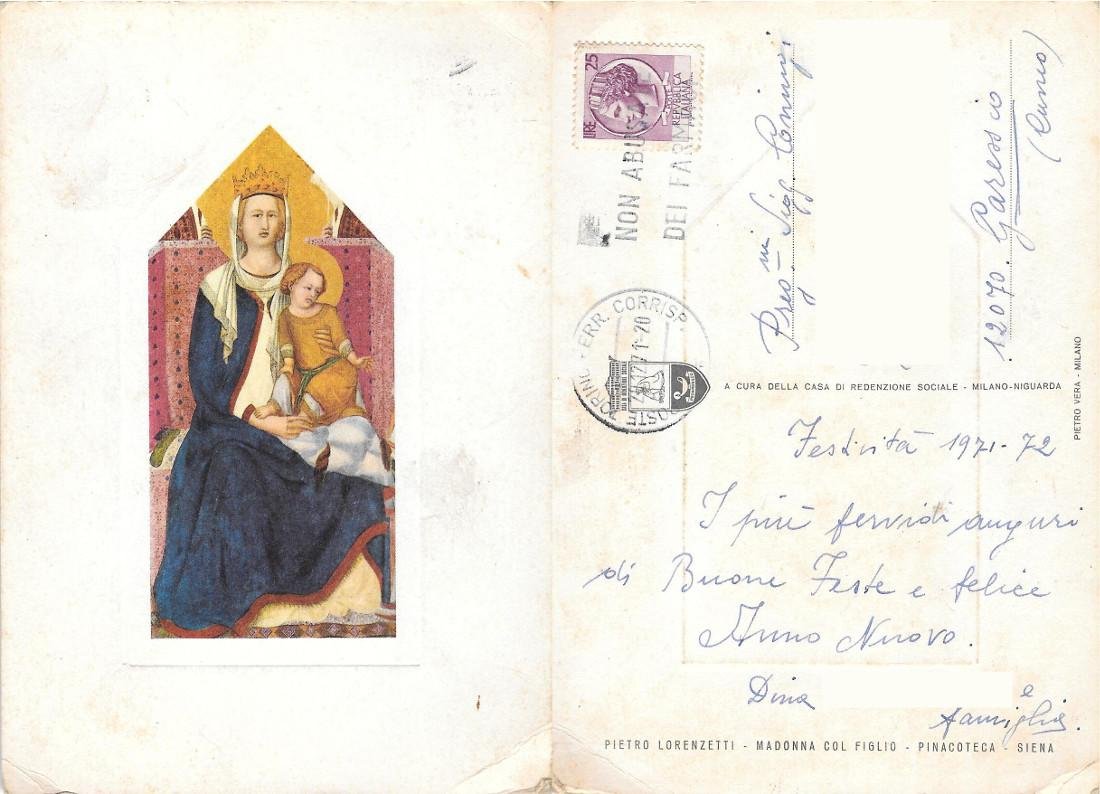 LIRE 25
POSTE
REPVBBLICA
ITALIANA
NON ABUS
DEI FARM
TORINO FERR. CORRISP.
POSTE
12 71-20
CASA DI REDENZIONE SOCIALE
Preg.mi Sigg Coniugi
12070. Garessio
(Cuneo)
A CURA DELLA CASA DI REDENZIONE SOCIALE - MILANO-NIGUARDA
PIETRO VERA - MILANO
Festività 1971-72
I più fervidi auguri
di Buone Feste e felice
Anno Nuovo.
Dina e
famiglia.
PIETRO LORENZETTI - MADONNA COL FIGLIO - PINACOTECA - SIENA